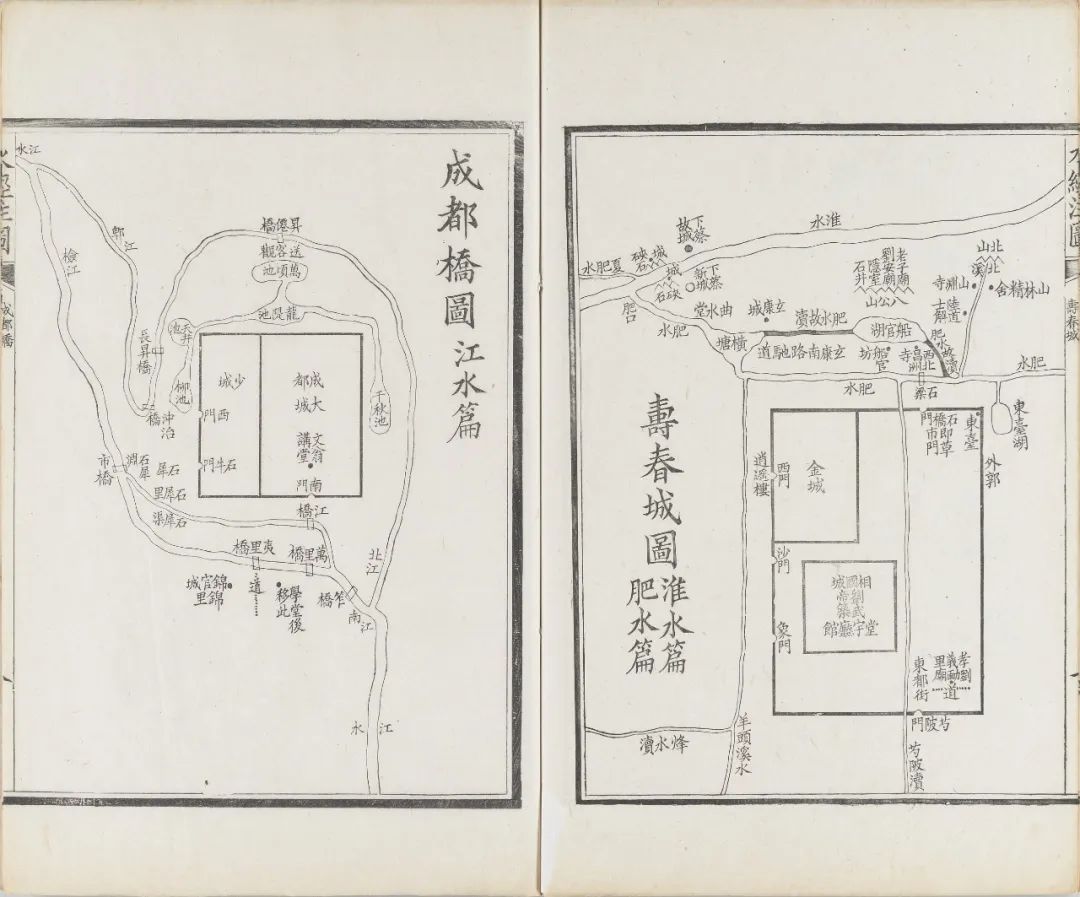 水經注圖
壽春城
壽春城圖
淮水篇
肥水篇
淮水
北山
北溪
山淵寺
山林精舍
陸道士解
老子廟
劉安廟
隱室
石井
八公山
下蔡故城
硤石城
下蔡新城
硤石城
夏肥水
肥口
肥水
曲水堂
玄康城
肥水故瀆
船官湖
肥水故瀆
橫塘
玄康南路馳道
船官坊
西昌寺
石梁
肥水
肥水
東臺湖
東臺
外郭
石橋門即草市門
金城
西門
逍遙樓
沙門
象門
相國城
劉武帝築
堂宇廳館
孝義里
劉勔廟
道
東都街
芍陂門
芍陂瀆
羊頭溪水
烽水瀆
成都橋圖
江水篇
江水
郫江
檢江
昇僊橋
送客觀
萬頃池
龍堤池
天井池
長昇橋
柳池
千秋池
沖治橋
少城
成都大城
西門
文翁講堂
石牛門
南門
市橋
石犀淵
石犀
石犀里
石犀渠
江橋
夷里橋
萬里橋
笮橋
錦官城
錦里
道
學堂後移此
北江
南江
江水
水經注圖
成都橋